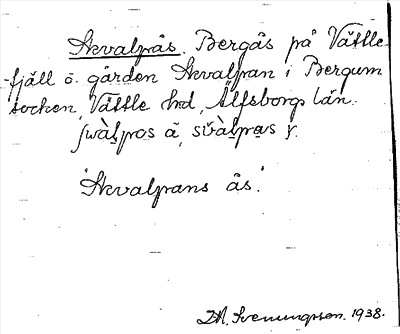 Skvalpås. Bergås på Vättle-
fjäll ö. gården Skvalpan i Bergum
socken, Vättle hd, Älfsborgs län.
ʃwàl̥pɑs å, svàl̥pɑs y.
"Skvalpans ås."
D.A. Svenungsson. 1938.